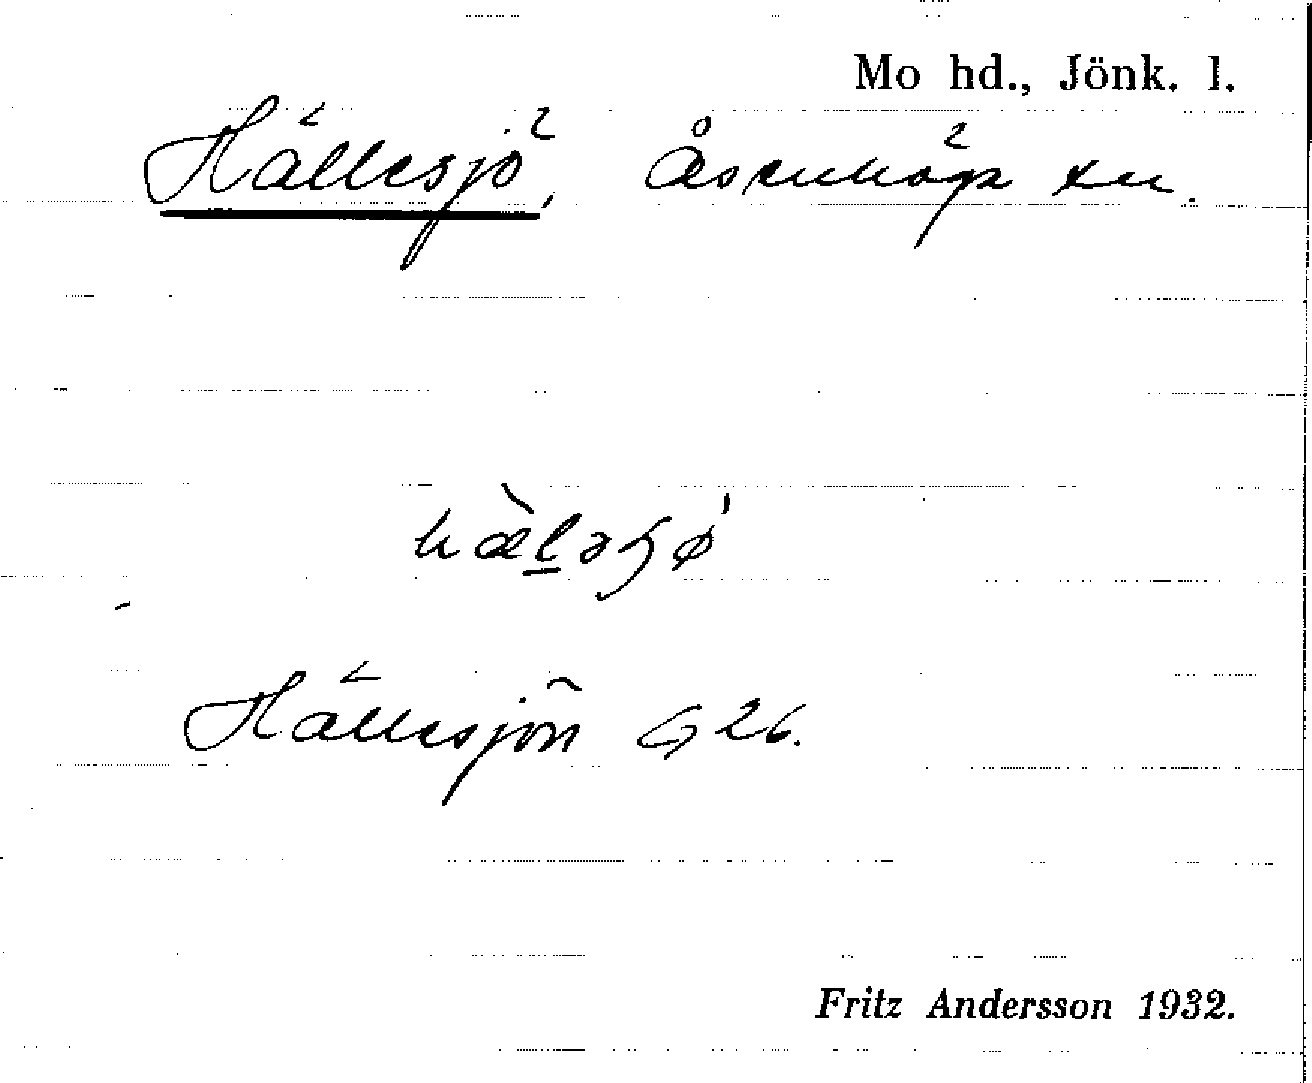 Mo hd., Jönk. l.
Hällesjö, Åsenhöga sn.
hæ̀ləɧø̍
Hällesjön G 26.
Fritz Andersson 1932.